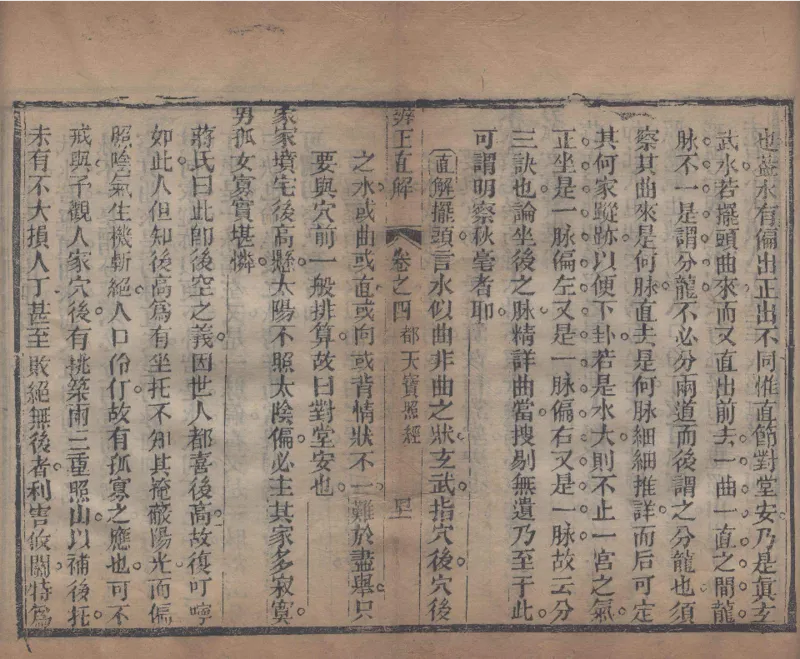 也蓋水有偏出正出不同惟直節對堂安乃是眞玄
武水若擺頭曲來而又直出前去一曲一直之間龍
脉不一是謂分龍不必分兩道而後謂之分龍也須
察其曲來是何脉直去是何脉細細推詳而后可定
其何家蹤跡以便下卦若是水大則不止一宮之氣
正坐是一脉偏左又是一脉偏右又是一脉故云分
三訣也論坐後之脉精詳曲當搜剔無遺乃至于此
可謂明察秋毫者耶
直解擺頭言水似曲非曲之狀玄武指穴後穴後
辨正直解
卷之四
都天寶照經
之水或曲或直或向或背情狀不一難於盡舉只
要與穴前一般排算故曰對堂安也
家家墳宅後高懸太陽不照太陰偏必主其家多寂寞
男孤女寡實堪憐
蔣氏曰此卽後空之義因世人都喜後高故復叮嚀
如此人但知後高爲有坐托不知其掩蔽陽光而偏
照陰氣生機斬絕人口伶仃故有孤寡之應也可不
戒與予觀人家穴後有挑築兩三重照山以補後托
未有不大損人丁甚至敗絕無後者利害攸關特爲